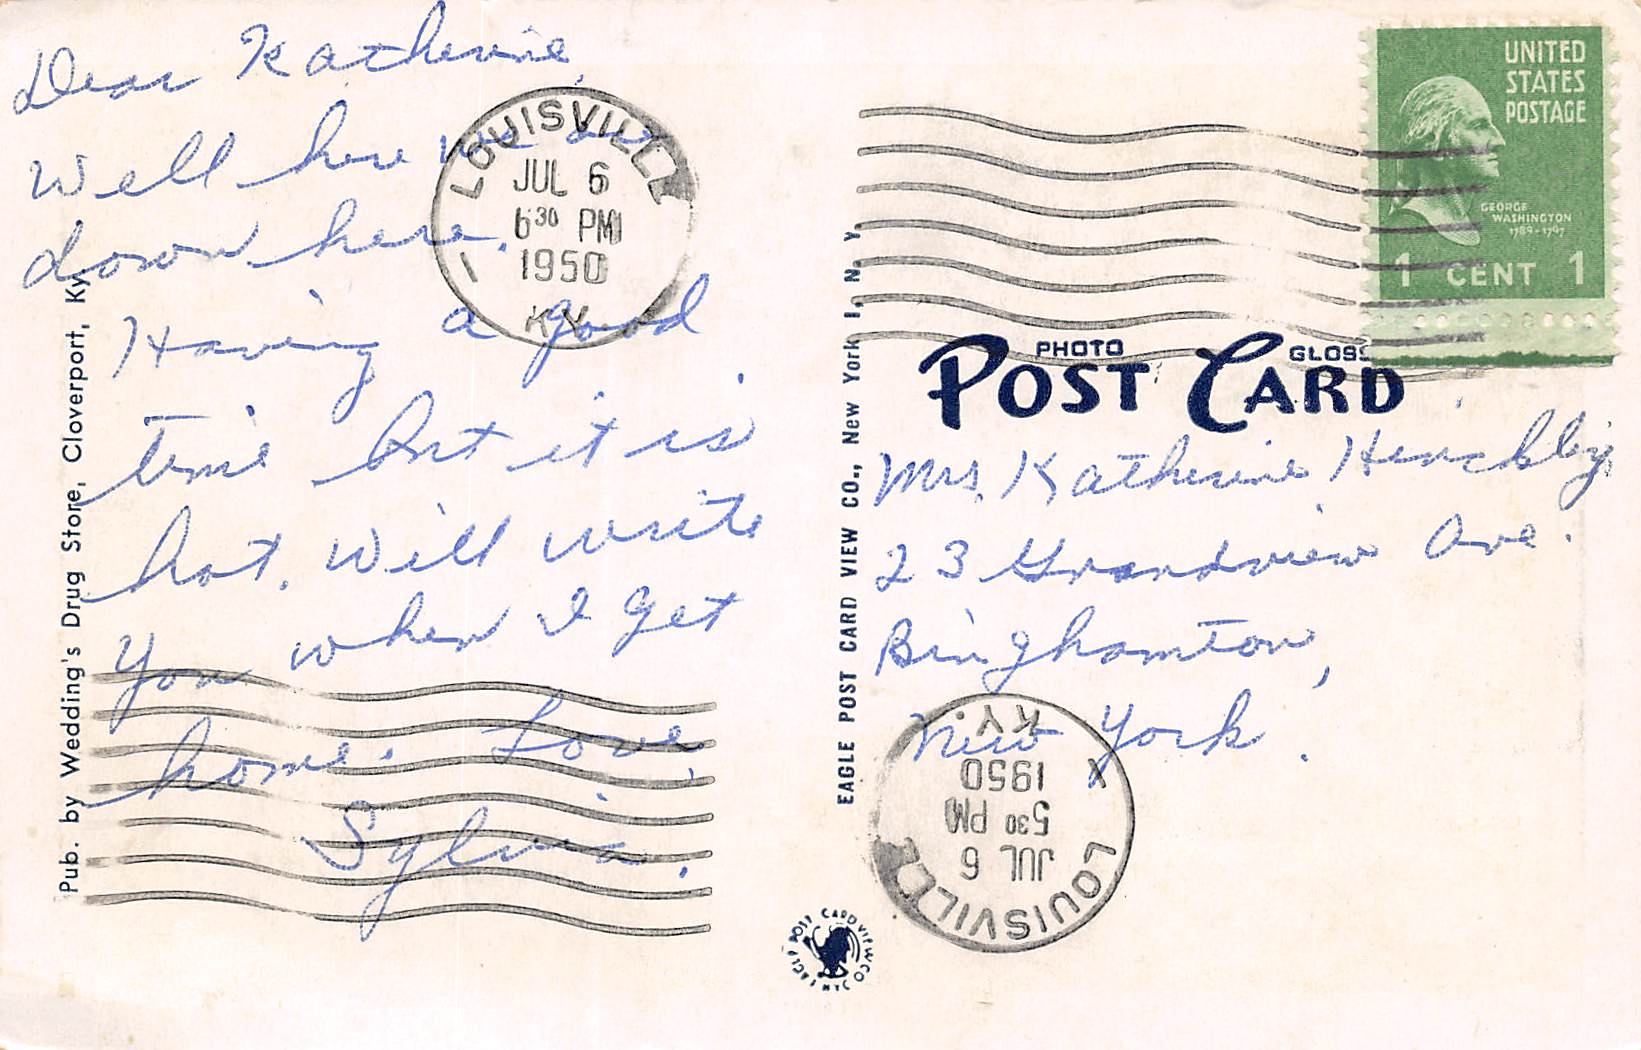 Dear Katherine,
Well here we are
down here.
Having a good
time but it is
hot. Will write
you when I get
home. Love,
Sylvia.
LOUISVILLE
JUL 6
6 30 PM
1950
1
KY.
Pub. by Wedding's Drug Store, Cloverport, Ky.
EAGLE POST CARD VIEW CO., New York 1, N. Y.
UNITED
STATES
POSTAGE
GEORGE
WASHINGTON
1789-1797
1 CENT 1
PHOTO GLOSS
POST CARD
Mrs. Katherine
23 Grandview Ave.
Binghamton,
New York.
LOUISVILLE
JUL 6
5 30 PM
1950
KY.
EAGLE POST CARD VIEW CO NYC